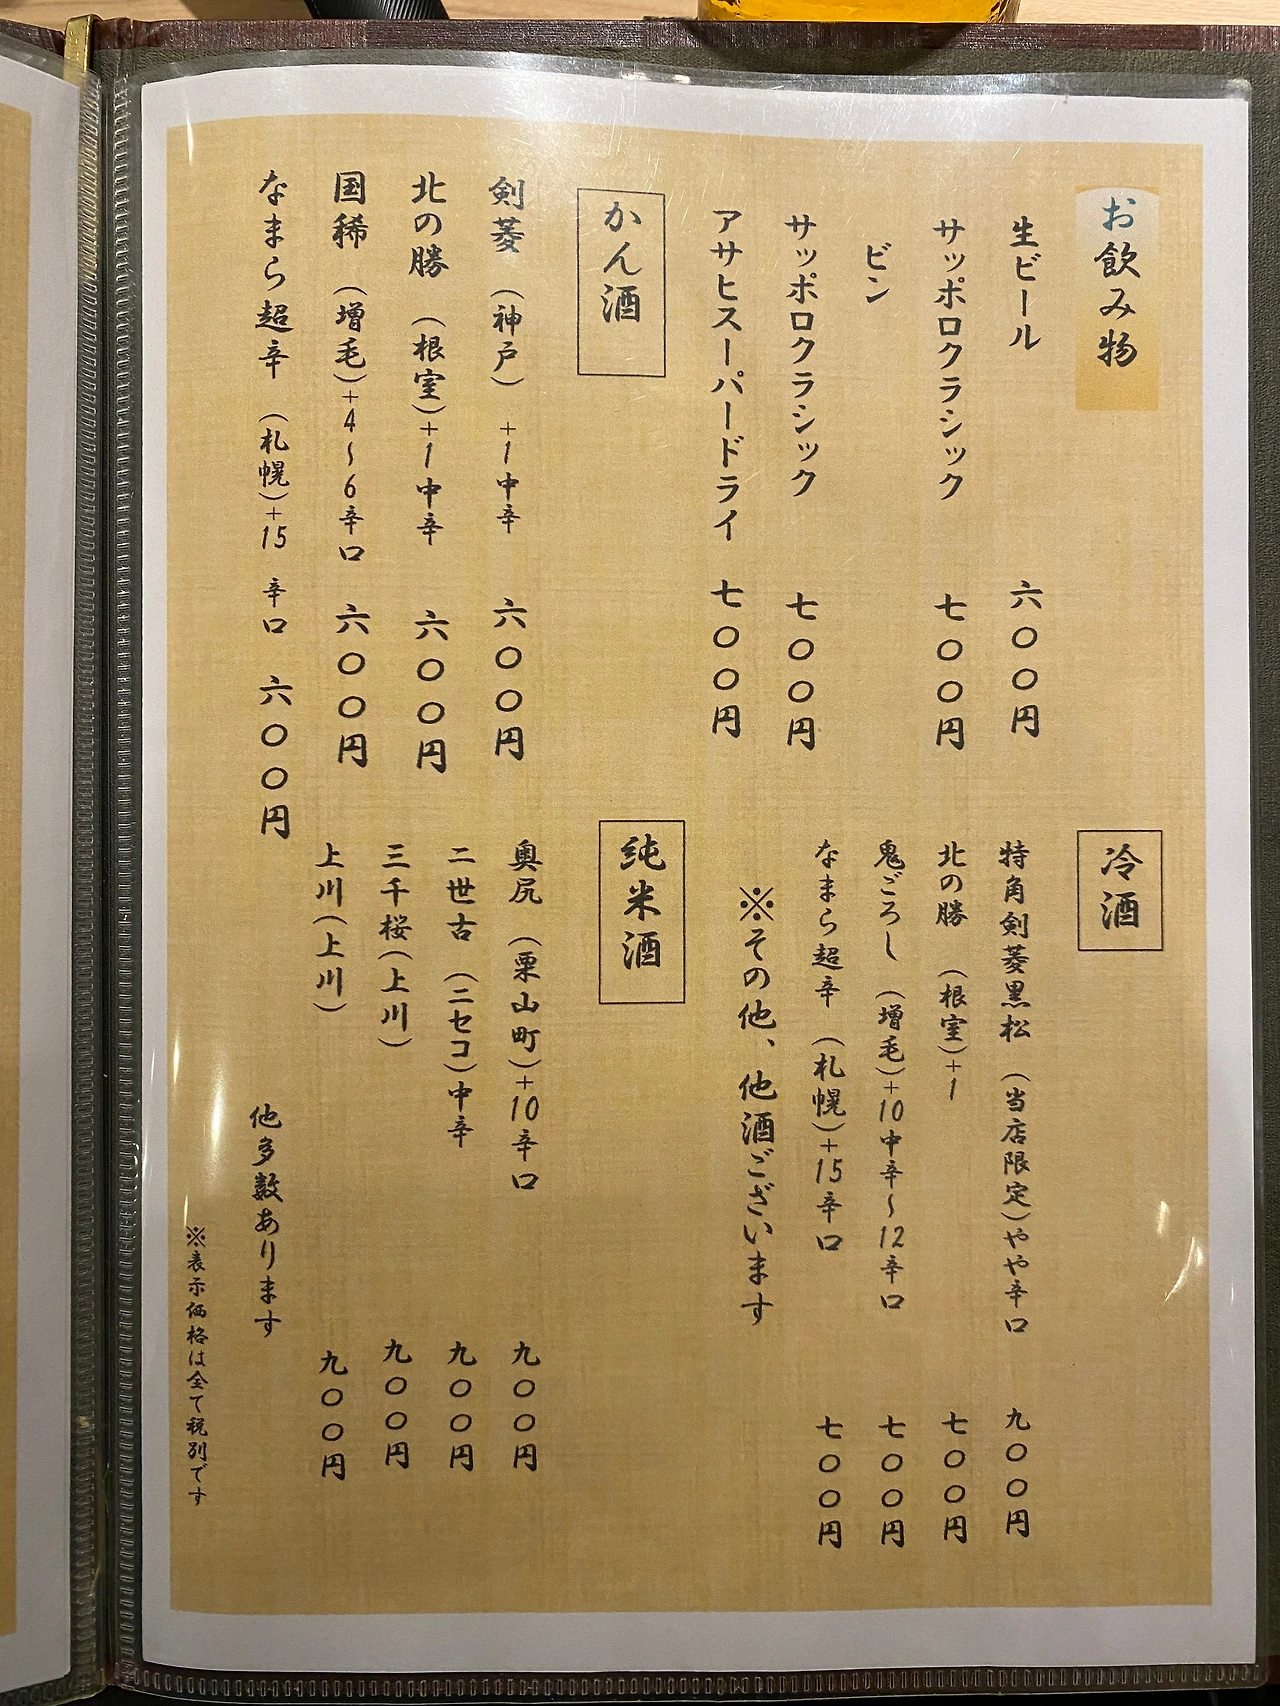 お飲み物
生ビール 六〇〇円
サッポロクラシック 七〇〇円
ビン
サッポロクラシック 七〇〇円
アサヒスーパードライ 七〇〇円
かん酒
剣菱 (神戸) +1中辛 六〇〇円
北の勝 (根室)+1中辛 六〇〇円
国稀 (増毛)+4~6辛口 六〇〇円
なまら超辛 (札幌)+15 辛口 六〇〇円
冷酒
特角剣菱黒松 (当店限定)やや辛口 九〇〇円
北の勝 (根室)+1 七〇〇円
鬼ごろし (増毛)+10中辛~12辛口 七〇〇円
なまら超辛 (札幌)+15辛口 七〇〇円
※その他、他酒ございます
純米酒
奥尻 (栗山町)+10辛口 九〇〇円
二世古 (ニセコ)中辛 九〇〇円
三千桜(上川) 九〇〇円
上川(上川) 九〇〇円
他多数あります
※表示価格は全て税別です